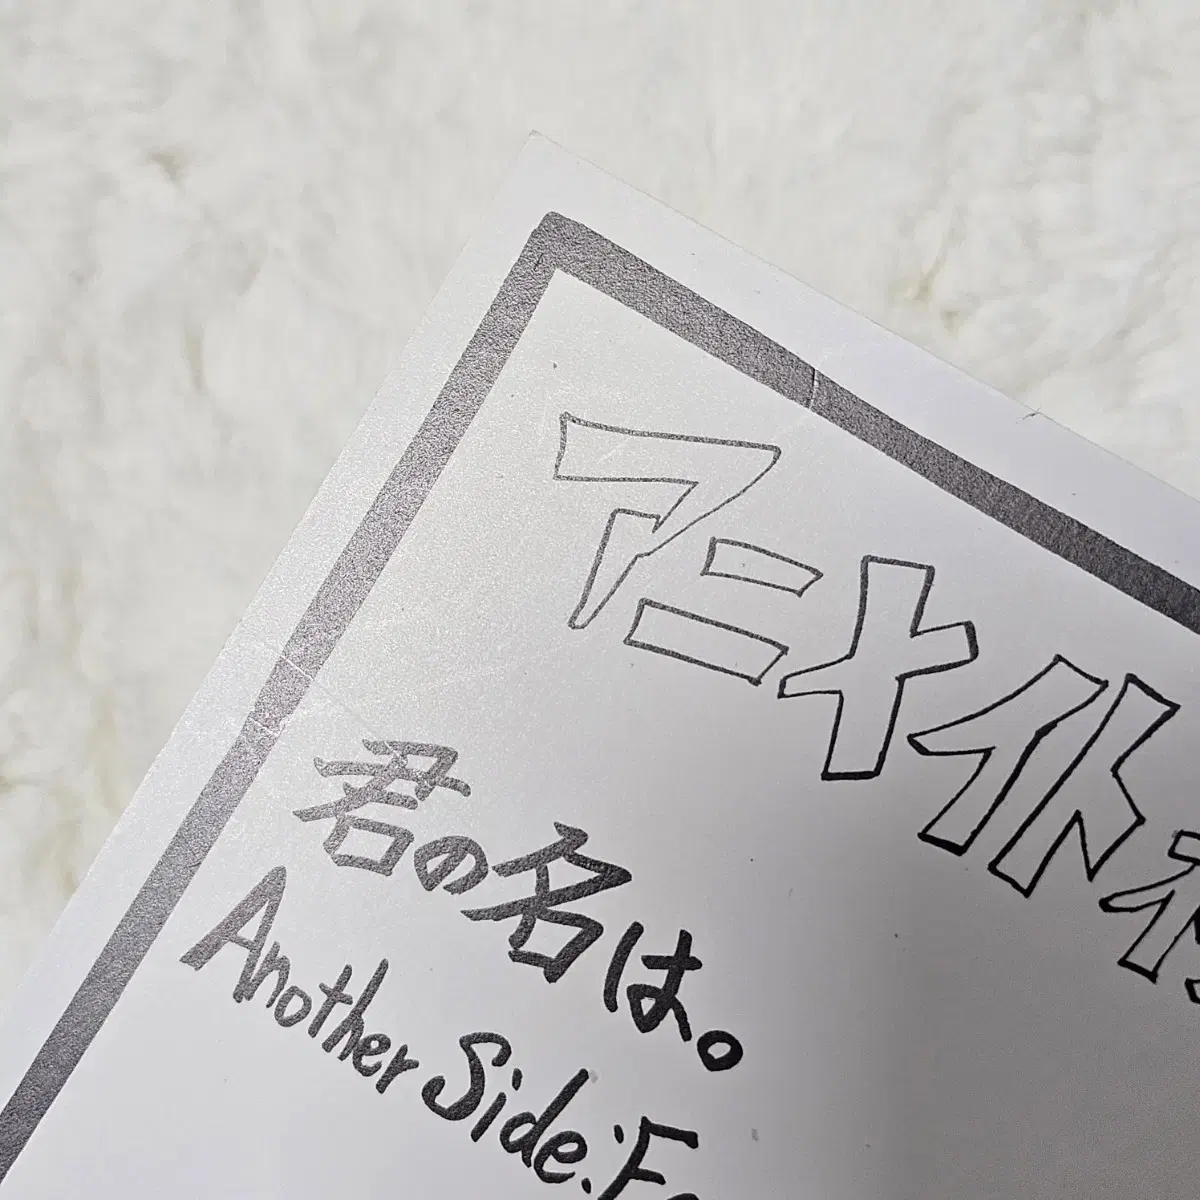 アニメイト
君の名は。
Another Side: